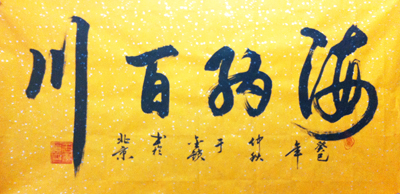 海纳百川
癸巳
年
仲秋
于
北京